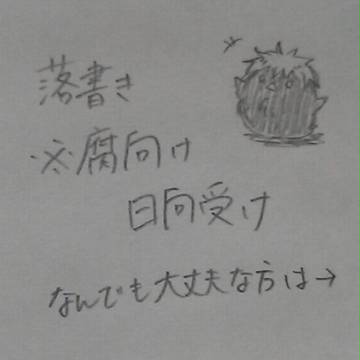 落書き
※腐向け
日向受け
なんでも大丈夫な方は→